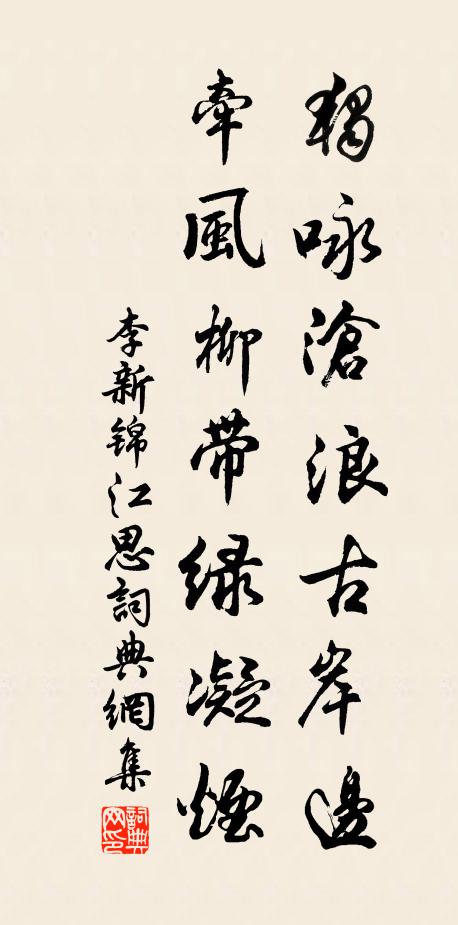 獨咏滄浪古岸邊
牽風柳帶綠凝煙
李新錦江思詞典網集
詞典
网印